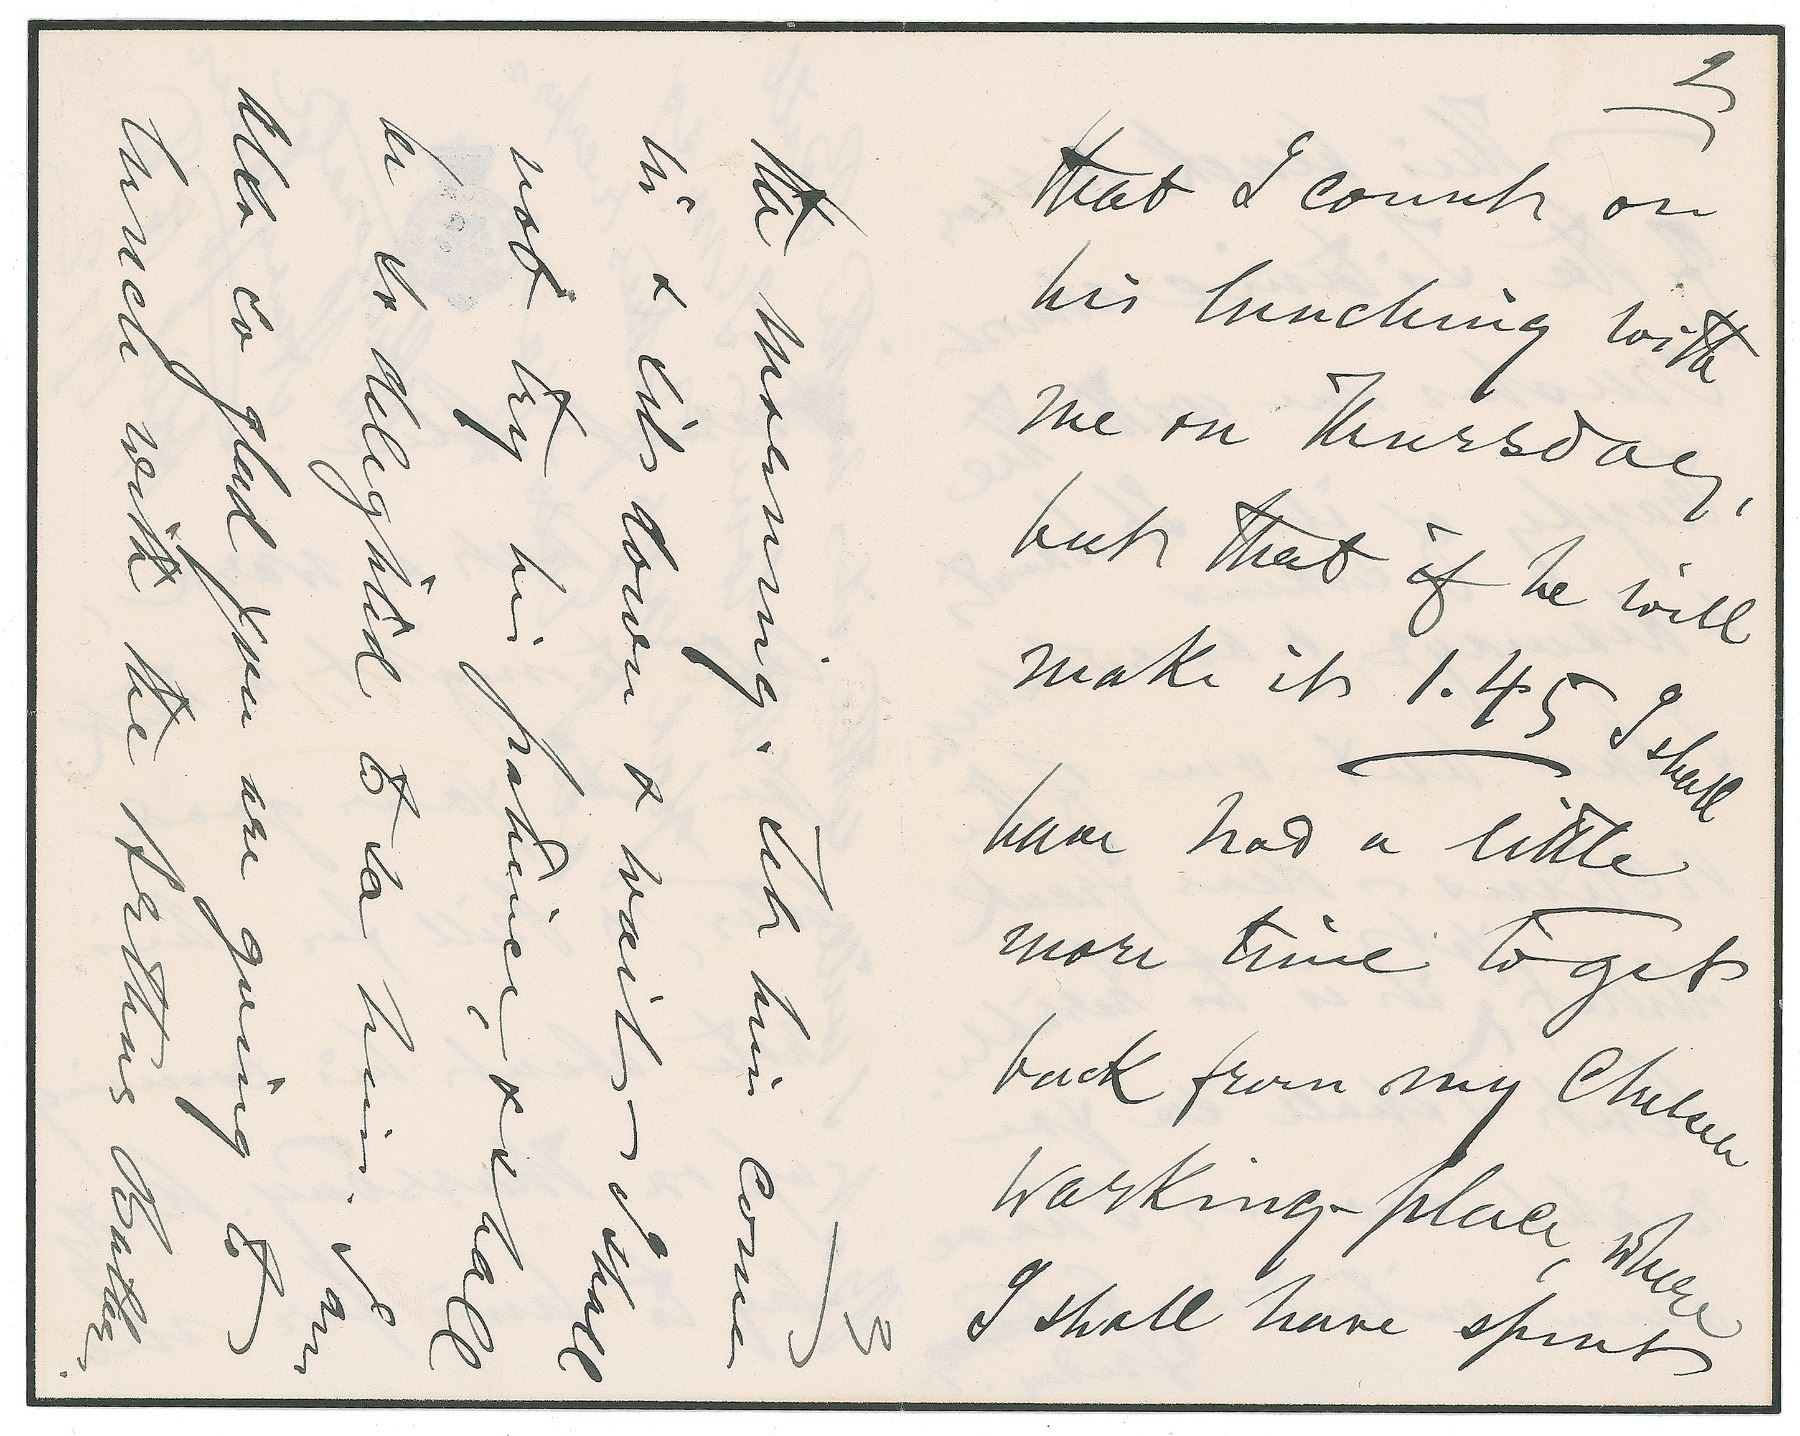 2
that I count on
his lunching with
me on Thursday,
but that if he will
make it 1.45 I shall
have had a little
more time to get
back from my Chelsea
working-place, where
I shall have spent
3
the morning. Let him come
in & sit down & wait – I shall
not try his patience, & shall
be so delighted to see him. I am
also so glad you are going to
lunch with the Arthur Butlers.